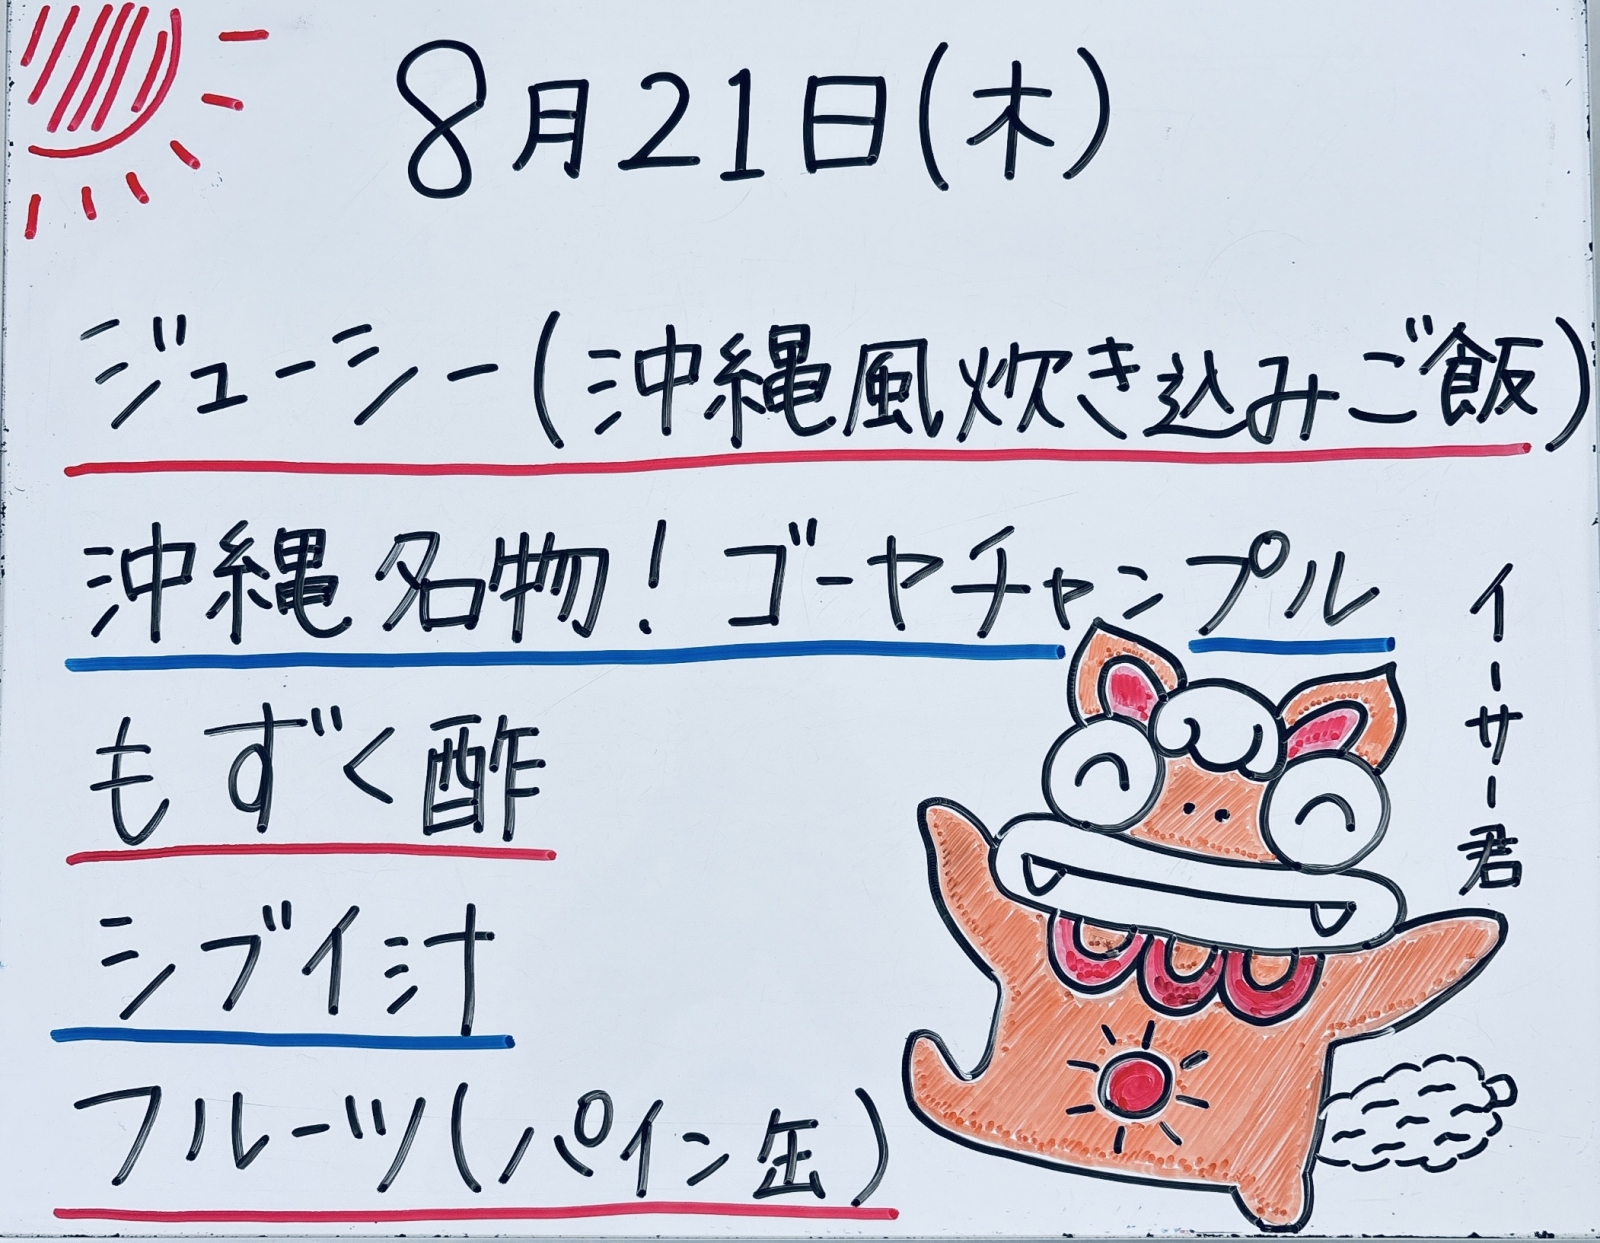 8月21日(木)
ジューシー(沖縄風炊き込みご飯)
沖縄名物!ゴーヤチャンプル
もずく酢
シブイ汁
フルーツ(パイン缶)
イーサー君